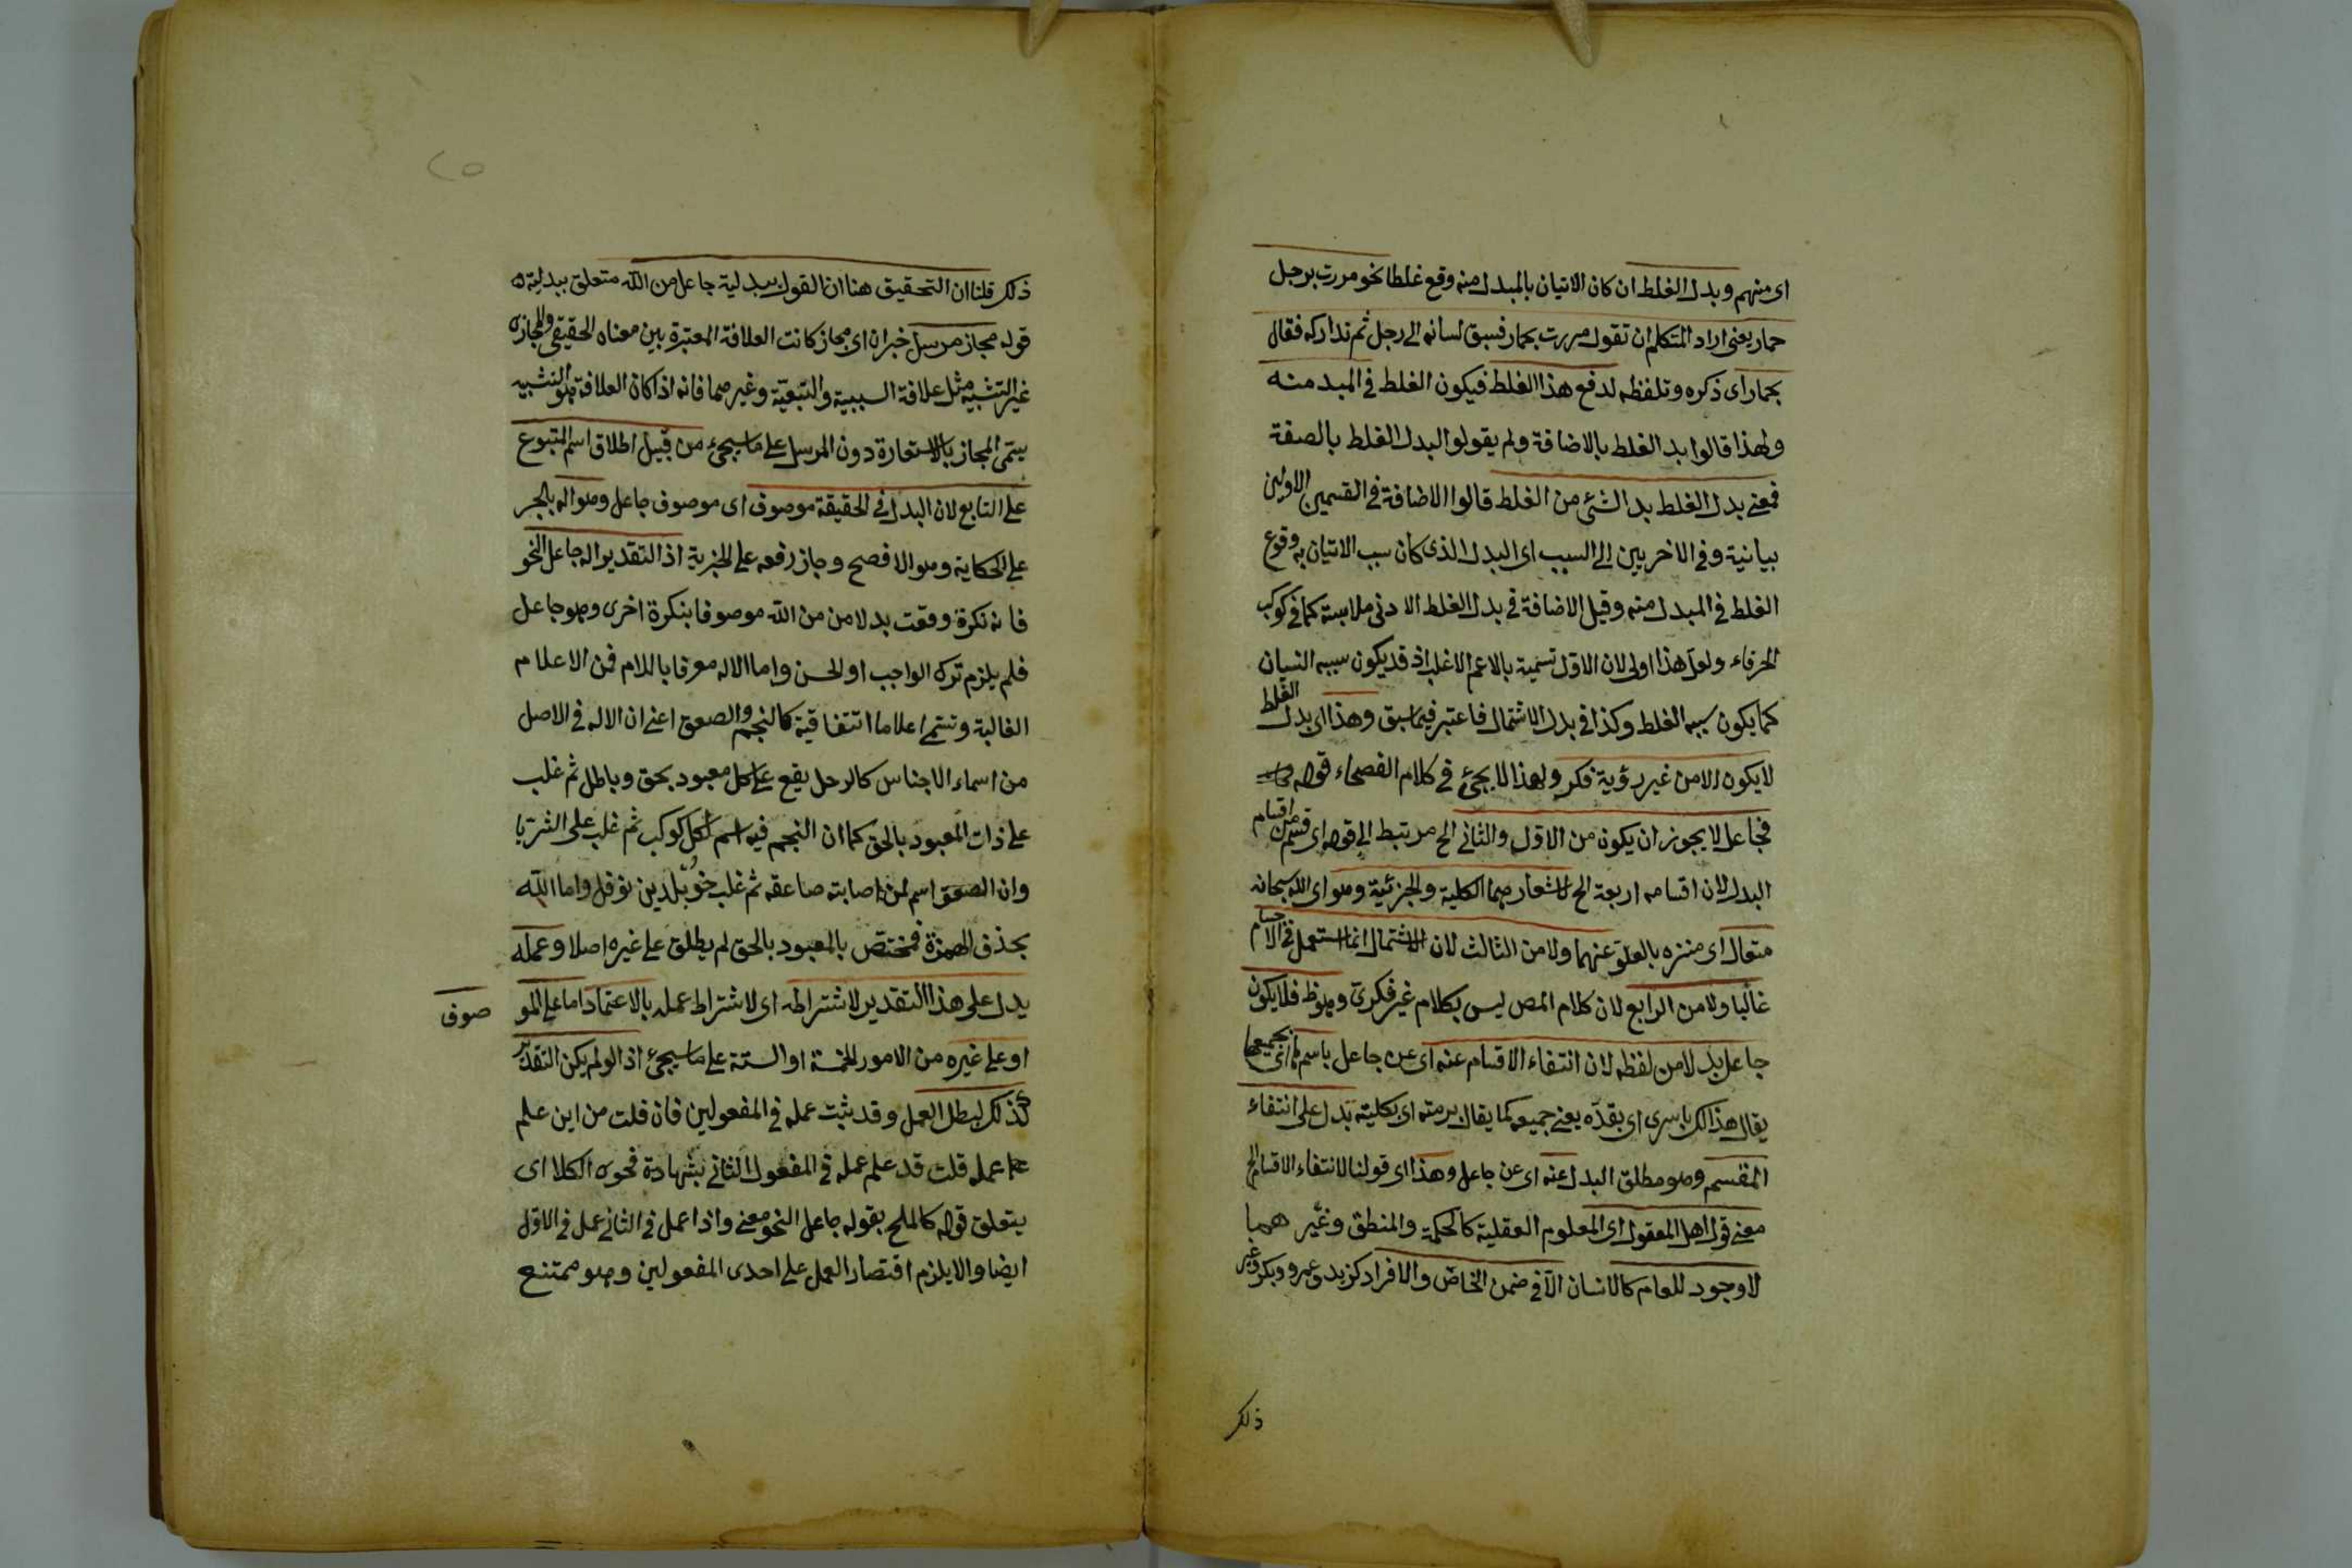 اى منهم وبدل الغلط ان كان الاتيان بالمبدل منه وقع غلطا نحو مررت برجل
حمار يعنى اراد المتكلم ان تقول مررت بحمار فسبق لسانه الى رجل ثم تداركه فقال
بحمار اى ذكره وتلفظه لدفع هذا الغلط فيكون الغلط فى المبد منه
ولهذا قالوا بدل الغلط بالاضافة ولم يقولوا البدل الغلط بالصفة
فمعنى بدل الغلط بدل الشئ من الغلط قالوا الاضافة فى القسمين الاولين
بيانية وفى الاخريين الى السبب اى البدل الذى كان سبب الاتيان به وقوع
الغلط فى المبدل منه وقيل الاضافة فى بدل الغلط الادنى ملابسة كما فى كوكب
الخرقاء ولعل هذا اولى لان الاول تسمية بالاعم الاغلب اذ قد يكون سببه النسيان
كما يكون سببه الغلط وكذا فى بدل الاشتمال فاعتبر فيما سبق وهذا اى بدل الغلط
لا يكون الا من غير رؤية فكر ولهذا لا يجئ فى كلام الفصحاء قوله
فجاعل لا يجوز ان يكون من الاول والثانى الخ مرتبط الى قوله اى قسم من اقسام
البدل لان اقسامه اربعة الخ لاشعارهما الكلية والجزئية وهو اى الله سبحانه
متعال اى منزه بالعلو عنهما ولا من الثالث لان الاشتمال انما استعمل فى الاجسام
غالبا ولا من الرابع لان كلام المص ليس بكلام غير فكرى وهو ظ فلا يكون
جاعل بدلا من لفظه لان انتفاء الاقسام عنه اى عن جاعل باسرها اى بجميعها
يقال هذا لك باسرى اى بقده يعنى جميعه كما يقال برمته اى بكليته تدل على انتفاء
المقسم وهو مطلق البدل عنه اى عن جاعل وهذا اى قولنا لانتفاء الاقسام الخ
معنى قول اهل المعقول اى المعلوم العقلية كالحكمة والمنطق وغير همها
لا وجود للعام كالانسان الا فى ضمن الخاص والافراد كزيد وعمرو وبكر وغير
ذلك
ذلك قلنا ان التحقيق هنا ان القول ببدلية جاعل من الله متعلق ببدليته
قوله مجاز مرسل خبر ان اى مجاز كانت العلاقة المعتبرة بين معناه الحقيقى والمجازه
غير التشبيه مثل علاقة السببية والتبعية وغيرهما فانه اذا كان العلاقة هو التشبيه
يسمى المجاز بالاستعارة دون المرسل على ما سيجئ من قبيل اطلاق اسم المتبوع
على التابع لان البدل فى الحقيقة موصوف اى موصوف جاعل وهو اله بالجر
على الحكاية وهو الافصح وجاز رفعه على الخبرية اذ التقدير اله جاعل النحو
فانه نكرة وقعت بدلا من من الله موصوفا بنكرة اخرى وهو جاعل
فلم يلزم ترك الواجب او الحسن واما الاله معرفا باللام فمن الاعلام
الغالبة وتسمى اعلاما اتفاقية كالنجم والصعق اعنى ان الاله فى الاصل
من اسماء الاجناس كالرجل يقع على كل معبود بحق وباطل ثم غلب
على ذات المعبود بالحق كما ان النجم فيه اسم لكل كوكب ثم غلب على الثريا
وان الصعق اسم لمن اصابته صاعقه ثم غلب خويلد بن نوفل واما الله
بحذف الهمزة فمختص بالمعبود بالحق لم يطلق على غيره اصلا وعمله
يدل على هذا التقدير لاشتراطه اى لاشتراط عمله بالاعتماد اما على المو صوف
او على غيره من الامور الخمسة او الستة على ما سيجئ اذ لو لم يكن التقدير
كذلك لبطل العمل وقد يثبت عمله فى المفعولين فان قلت من اين علم
عمله قلت قد علم عمله فى المفعول الثانى بشهادة فحوى الكلا اى
يتعلق قوله كالملح بقوله جاعل النحو معنى واذا عمل فى الثانى عمل فى الاول
ايضا والا يلزم اقتصار العمل على احدى المفعولين وهو ممتنع